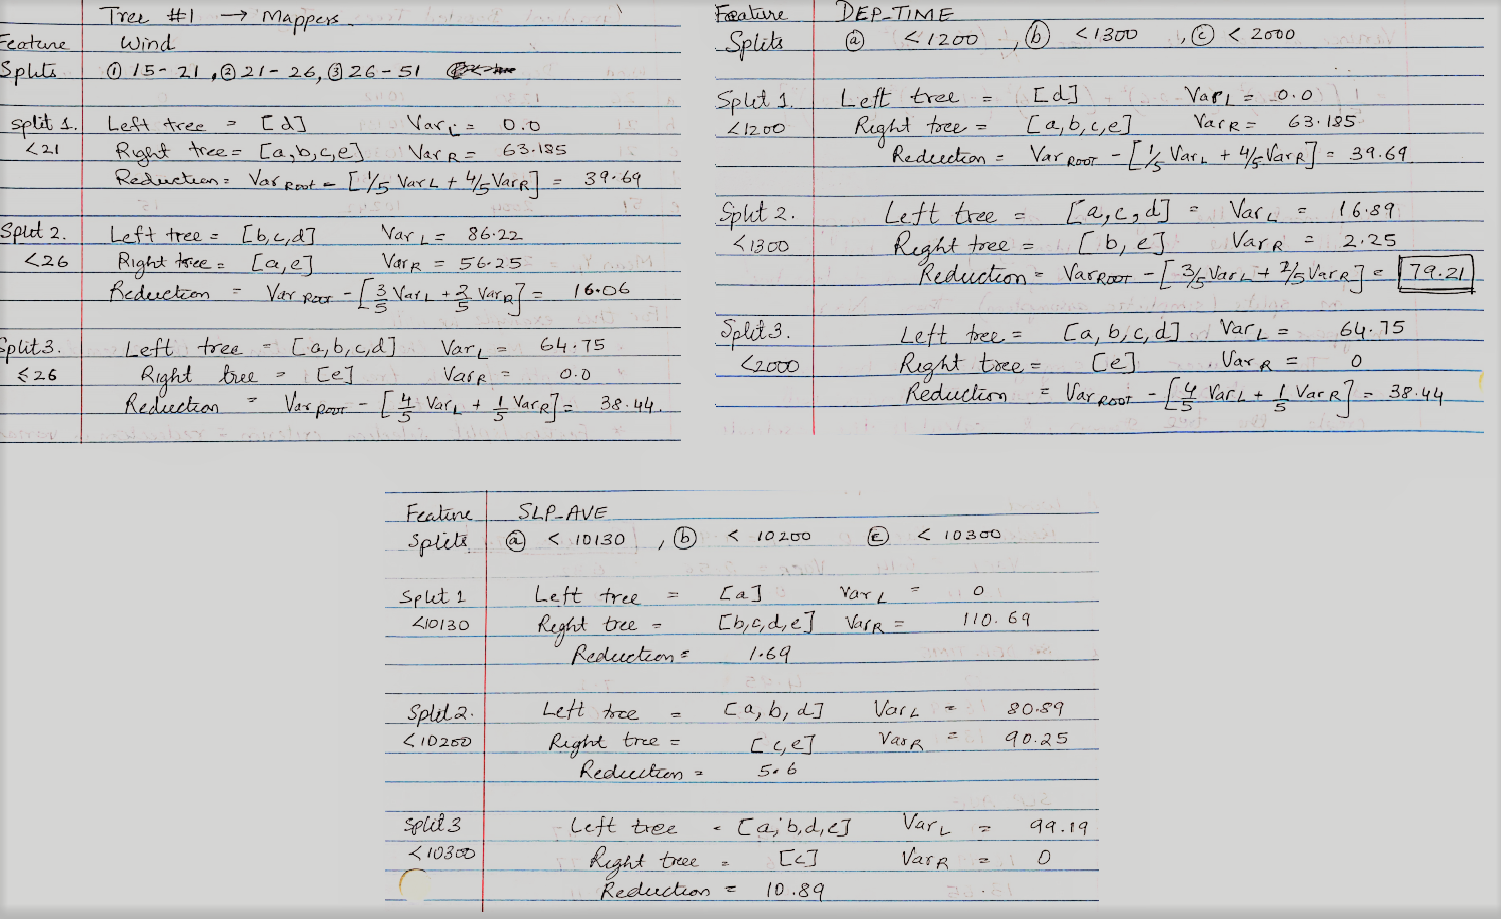 Tree #1 → Mappers
Feature Wind
Splits ① 15-21, ② 21-26, ③ 26-51
split 1. Left tree = [d] Var L = 0.0
<21 Right tree = [a,b,c,e] Var R = 63.185
Reduction = Var Root - [1/5 Var L + 4/5 Var R] = 39.69
Split 2. Left tree = [b,c,d] Var L = 86.22
<26 Right tree = [a,e] Var R = 56.25
Reduction = Var Root - [3/5 Var L + 2/5 Var R] = 16.06
Split 3. Left tree = [a,b,c,d] Var L = 64.75
≤26 Right tree = [e] Var R = 0.0
Reduction = Var Root - [4/5 Var L + 1/5 Var R] = 38.44
Feature DEP_TIME
Splits ⓐ <1200, ⓑ <1300, ⓒ <2000
Split 1. Left tree = [d] Var L = 0.0
<1200 Right tree = [a,b,c,e] Var R = 63.185
Reduction = Var ROOT - [1/5 Var L + 4/5 Var R] = 39.69
Split 2. Left tree = [a,c,d] = Var L = 16.89
<1300 Right tree = [b,e] Var R = 2.25
Reduction = Var ROOT - [3/5 Var L + 2/5 Var R] = 79.21
Split 3. Left tree = [a,b,c,d] Var L = 64.75
<2000 Right tree = [e] Var R = 0
Reduction = Var ROOT - [4/5 Var L + 1/5 Var R] = 38.44
Feature SLP_AVE
Splits ⓐ <10130, ⓑ <10200 ⓒ <10300
Split 1 Left tree = [a] Var L = 0
<10130 Right tree = [b,c,d,e] Var R = 110.69
Reduction = 1.69
Split 2. Left tree = [a,b,d] Var L = 80.89
<10200 Right tree = [c,e] Var R = 90.25
Reduction = 5.6
Split 3 Left tree = [a,b,d,e] Var L = 99.19
<10300 Right tree = [c] Var R = 0
Reduction = 10.89